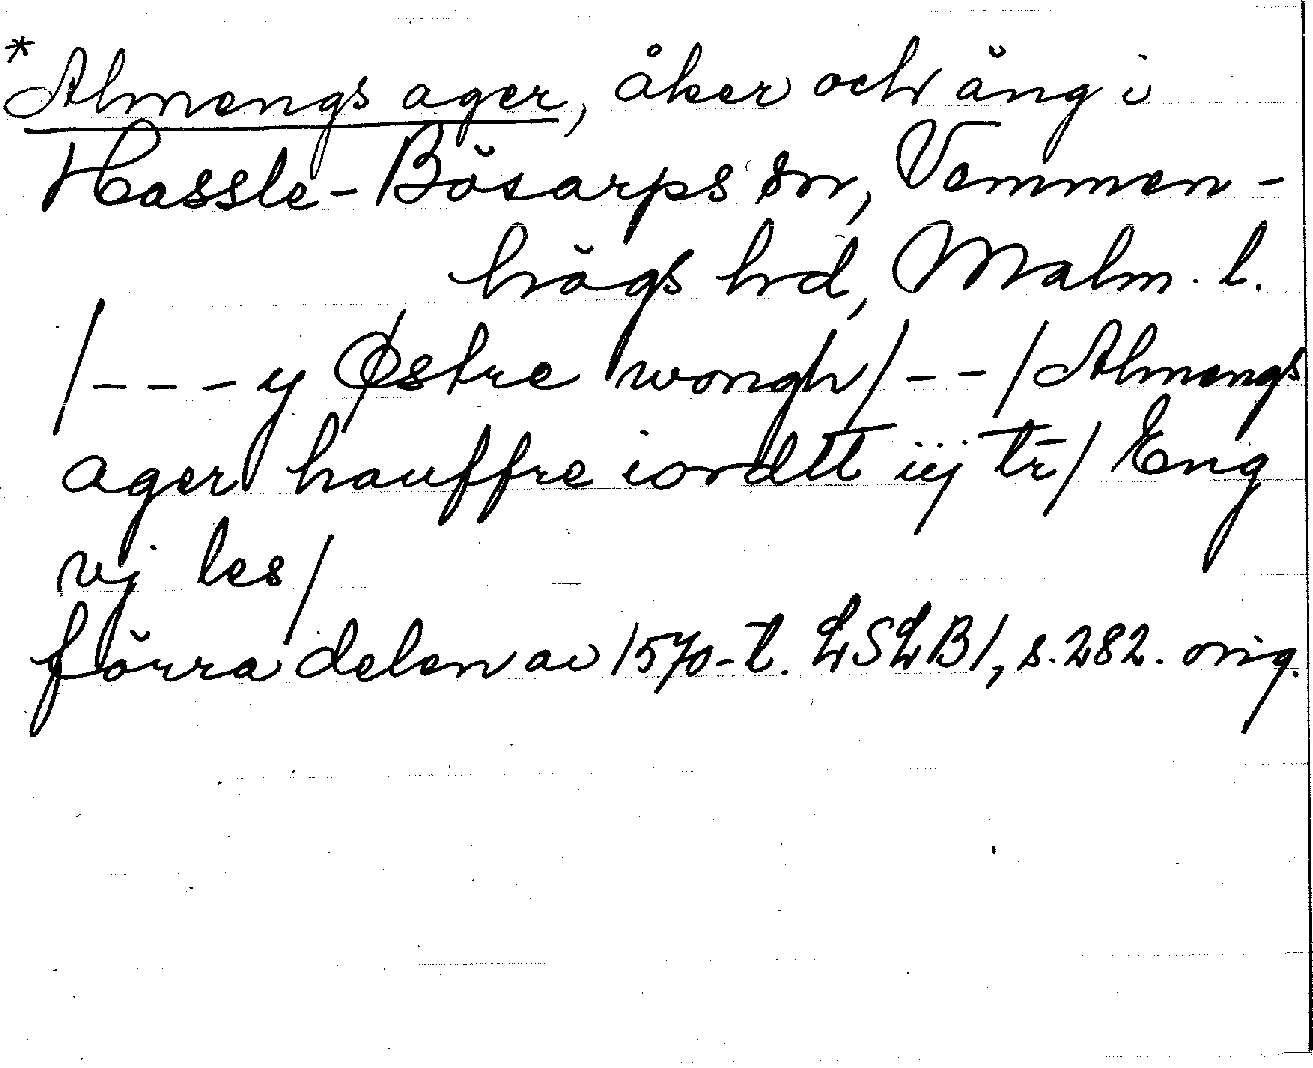 *Almengs ager, åker och äng i
Hassle-Bösarps sn, Vemmen-
högs hd, Malm. l.
/---y Østre wongh/--/Almengs
ager hauffre iordtt iij tr̄/ Eng
vj les/
förra delen av 1570-t. LSLB1, s.282. orig.